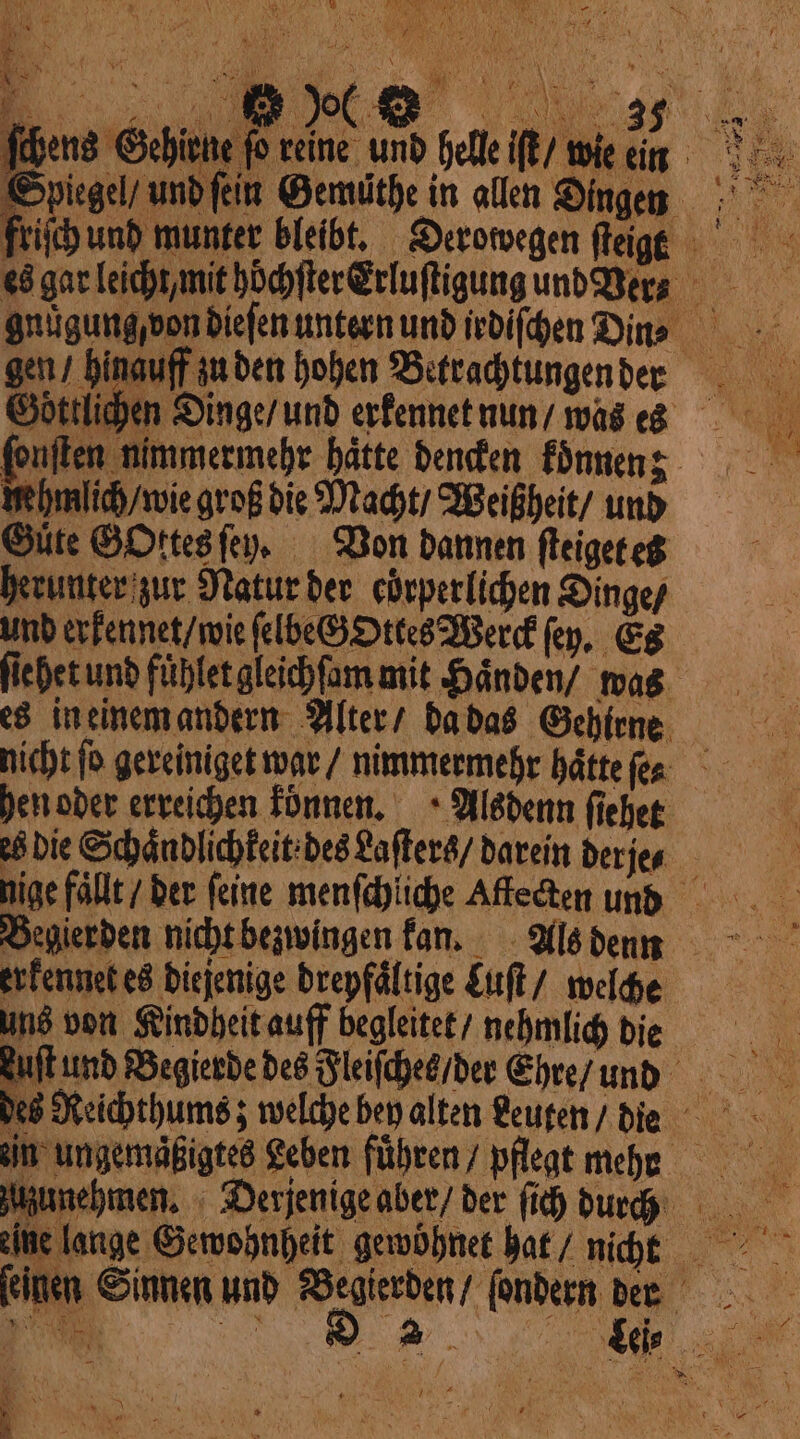 ❁ )o( ❁ 35
ſchens Gehirne ſo reine und helle iſt / wie ein
Spiegel / und ſein Gemuͤthe in allen Dingen
friſch und munter bleibt. Derowegen ſteigt
es gar leicht, mit hoͤchſter Erluſtigung und Ver⸗
gnuͤgung, von dieſen untern und irdiſchen Din⸗
gen / hinauff zu den hohen Betrachtungen der
Goͤttlichen Dinge / und erkennet nun / was es
ſonſten nimmermehr haͤtte dencken koͤnnen;
nehmlich / wie groß die Macht / Weißheit / und
Guͤte GOttes ſey. Von dannen ſteiget es
herunter zur Natur der coͤrperlichen Dinge /
und erkennet / wie ſelbe GOttes Werck ſey. Es
ſiehet und fuͤhlet gleichſam mit Haͤnden / was
es in einem andern Alter / da das Gehirne
nicht ſo gereiniget war / nimmermehr haͤtte ſe⸗
hen oder erreichen koͤnnen. Alsdenn ſiehet
es die Schaͤndlichkeit des Laſters / darein derje⸗
nige faͤllt / der ſeine menſchliche Affecten und
Begierden nicht bezwingen kan. Als denn
erkennet es diejenige dreyfaͤltige Luſt / welche
uns von Kindheit auff begleitet / nehmlich die
Luſt und Begierde des Fleiſches / der Ehre / und
des Reichthums; welche bey alten Leuten / die
ein ungemaͤßigtes Leben fuͤhren / pflegt mehr
zuzunehmen. Derjenige aber / der ſich durch
eine lange Gewohnheit gewoͤhnet hat / nicht
ſeinen Sinnen und Begierden / ſondern der
D 2 Lei⸗